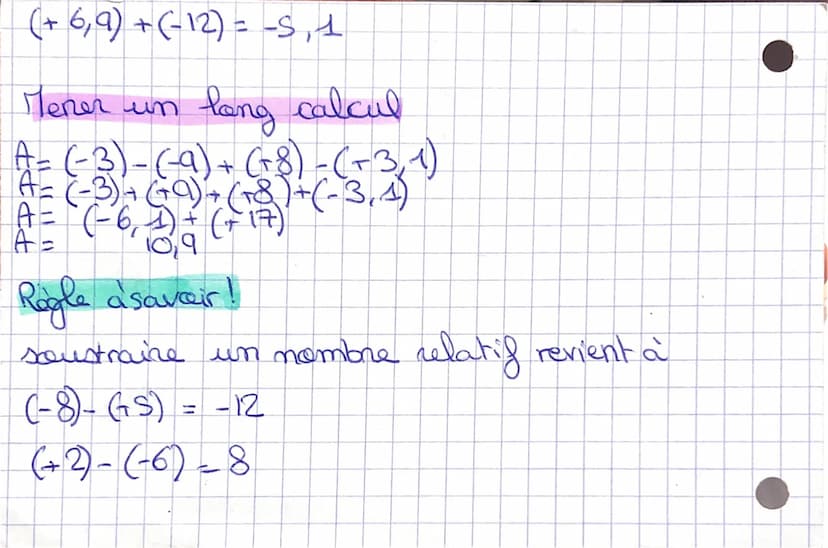 (+ 6,9) + (-12) = -5,1
Mener un long calcul
A = (-3) - (-9) + (+8) - (+3,1)
A = (-3) + (+9) + (+8) + (-3,1)
A = (-6,1) + (+17)
A = 10,9
Règle à savoir !
soustraire un nombre relatif revient à
(-8) - (+5) = -12
(+2) - (-6) = 8